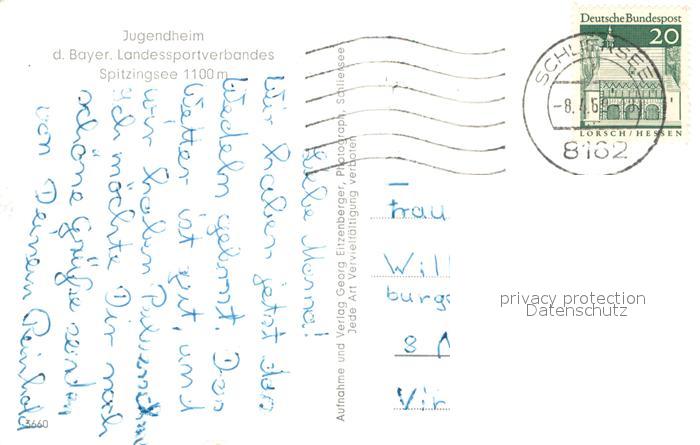 Jugendheim
d. Bayer. Landessportverbandes
Spitzingsee 1100 m
Liebe Mama!
Wir haben jetzt den
Wedeln gelernt. Das
Wetter ist gut, und
wir haben
Ich möchte Dir noch
schöne Grüße senden
von Deinem Reinhold
3660
Aufnahme und Verlag Georg Eitzenberger, Photograph, Schliersee
Jede Art Vervielfältigung verboten
Deutsche Bundespost
20
LORSCH/HESSEN
SCHLIERSEE
-8.4.6
8162
Frau
Will
burgs
8
Vir
privacy protection
Datenschutz